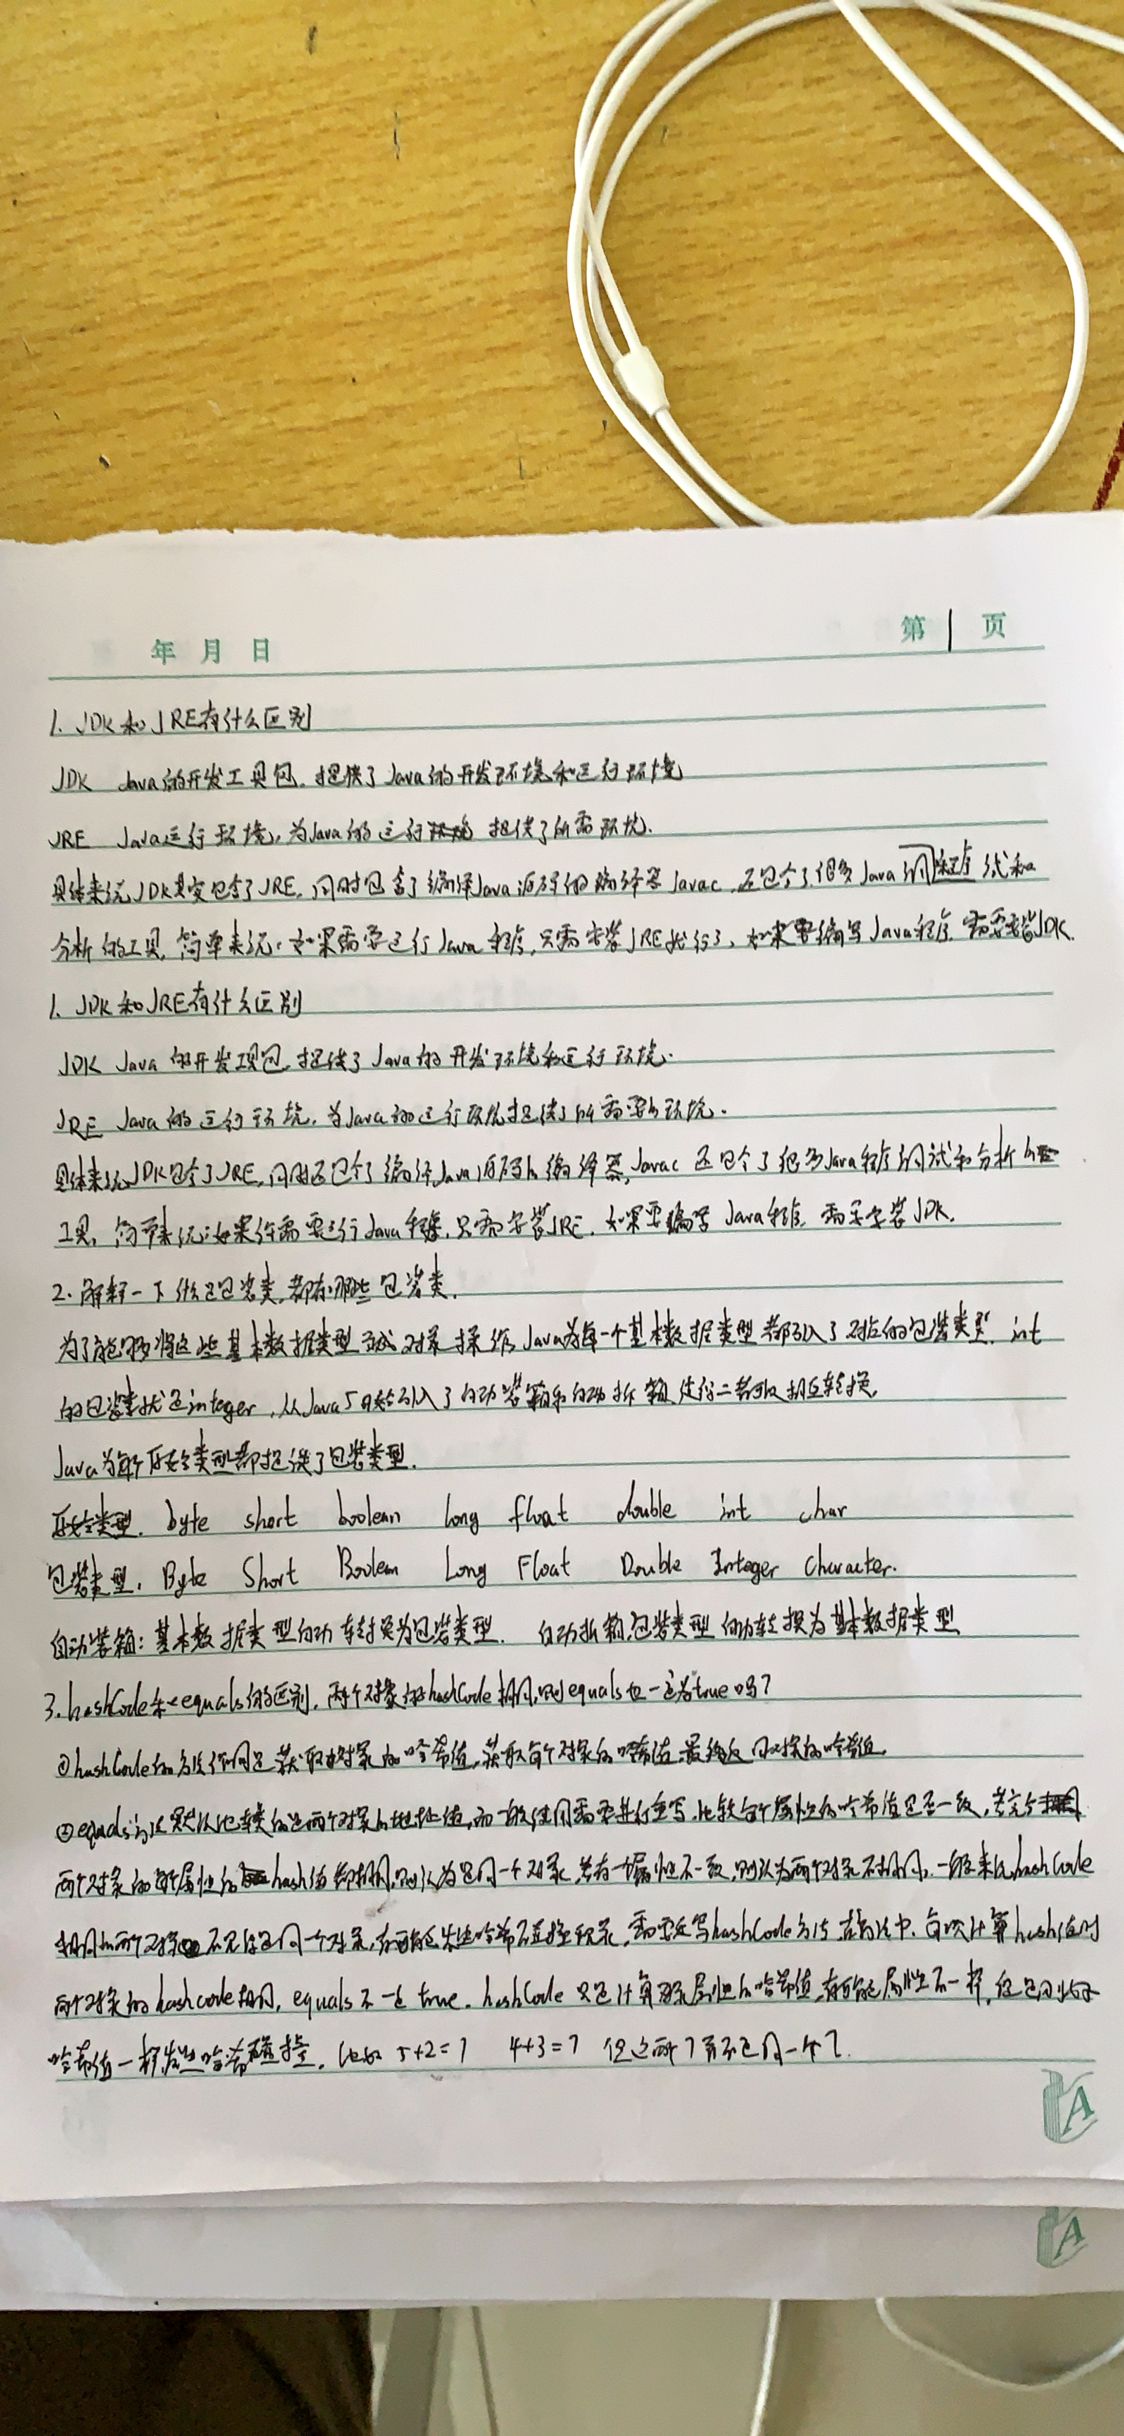 年 月 日
第 1 页
1. JDK和JRE有什么区别
JDK Java的开发工具包,提供了Java的开发环境和运行环境
JRE Java运行环境,为Java的运行提供了所需环境.
具体来说JDK其实包含了JRE,同时包含了编译Java源码的编译器Javac,还包含了很多Java程序调试和
分析的工具,简单来说:如果需要运行Java程序,只需安装JRE就行了,如果要编写Java程序,需要安装JDK.
1. JDK和JRE有什么区别
JDK Java的开发工具包,提供了Java的开发环境和运行环境.
JRE Java的运行环境,为Java的运行环境提供了所需要的环境.
具体来说JDK包含了JRE,同时还包含了编译Java源码的编译器Javac还包含了很多Java程序调试和分析的
工具,简单来说:如果你需要运行Java程序,只需安装JRE,如果要编写Java程序,需要安装JDK.
2.解释一下什么是包装类,都有哪些包装类.
为了能够将这些基本数据类型当成对象操作Java为每一个基本数据类型都引入了对应的包装类型, int
的包装类就是integer,从Java5开始引入了自动装箱和自动拆箱使得二者可以相互转换.
Java为每个原始类型都提供了包装类型.
原始类型. byte short boolean long float double int char
包装类型. Byte Short Boolean Long Float Double Integer Character.
自动装箱:基本数据类型自动转换为包装类型. 自动拆箱:包装类型自动转换为基本数据类型
3. hashCode和equals的区别,两个对象的hashCode相同,则equals也一定为true吗?
①hashCode的方法作用是获取对象的哈希值,获取每个对象的哈希值最终返回对象的哈希值.
②equals方法默认比较的是两个对象的地址值,而一般使用需要进行重写,比较每个属性的哈希值是否一致,若
两个对象的每个属性的hash值都相同,则认为是同一个对象,若有一属性不一致,则认为两个对象不相同,一般来说hashCode
相同的两个对象不见得是同一个对象,有可能发生哈希碰撞现象,需要重写hashCode方法在方法中,每次计算hash值时
两个对象的hashcode相同, equals不一定true. hashCode只是计算属性的哈希值,有可能属性不一样,但是
哈希值一样发生哈希碰撞. 比如 5+2=7 4+3=7 但这两7并不是同一个7.